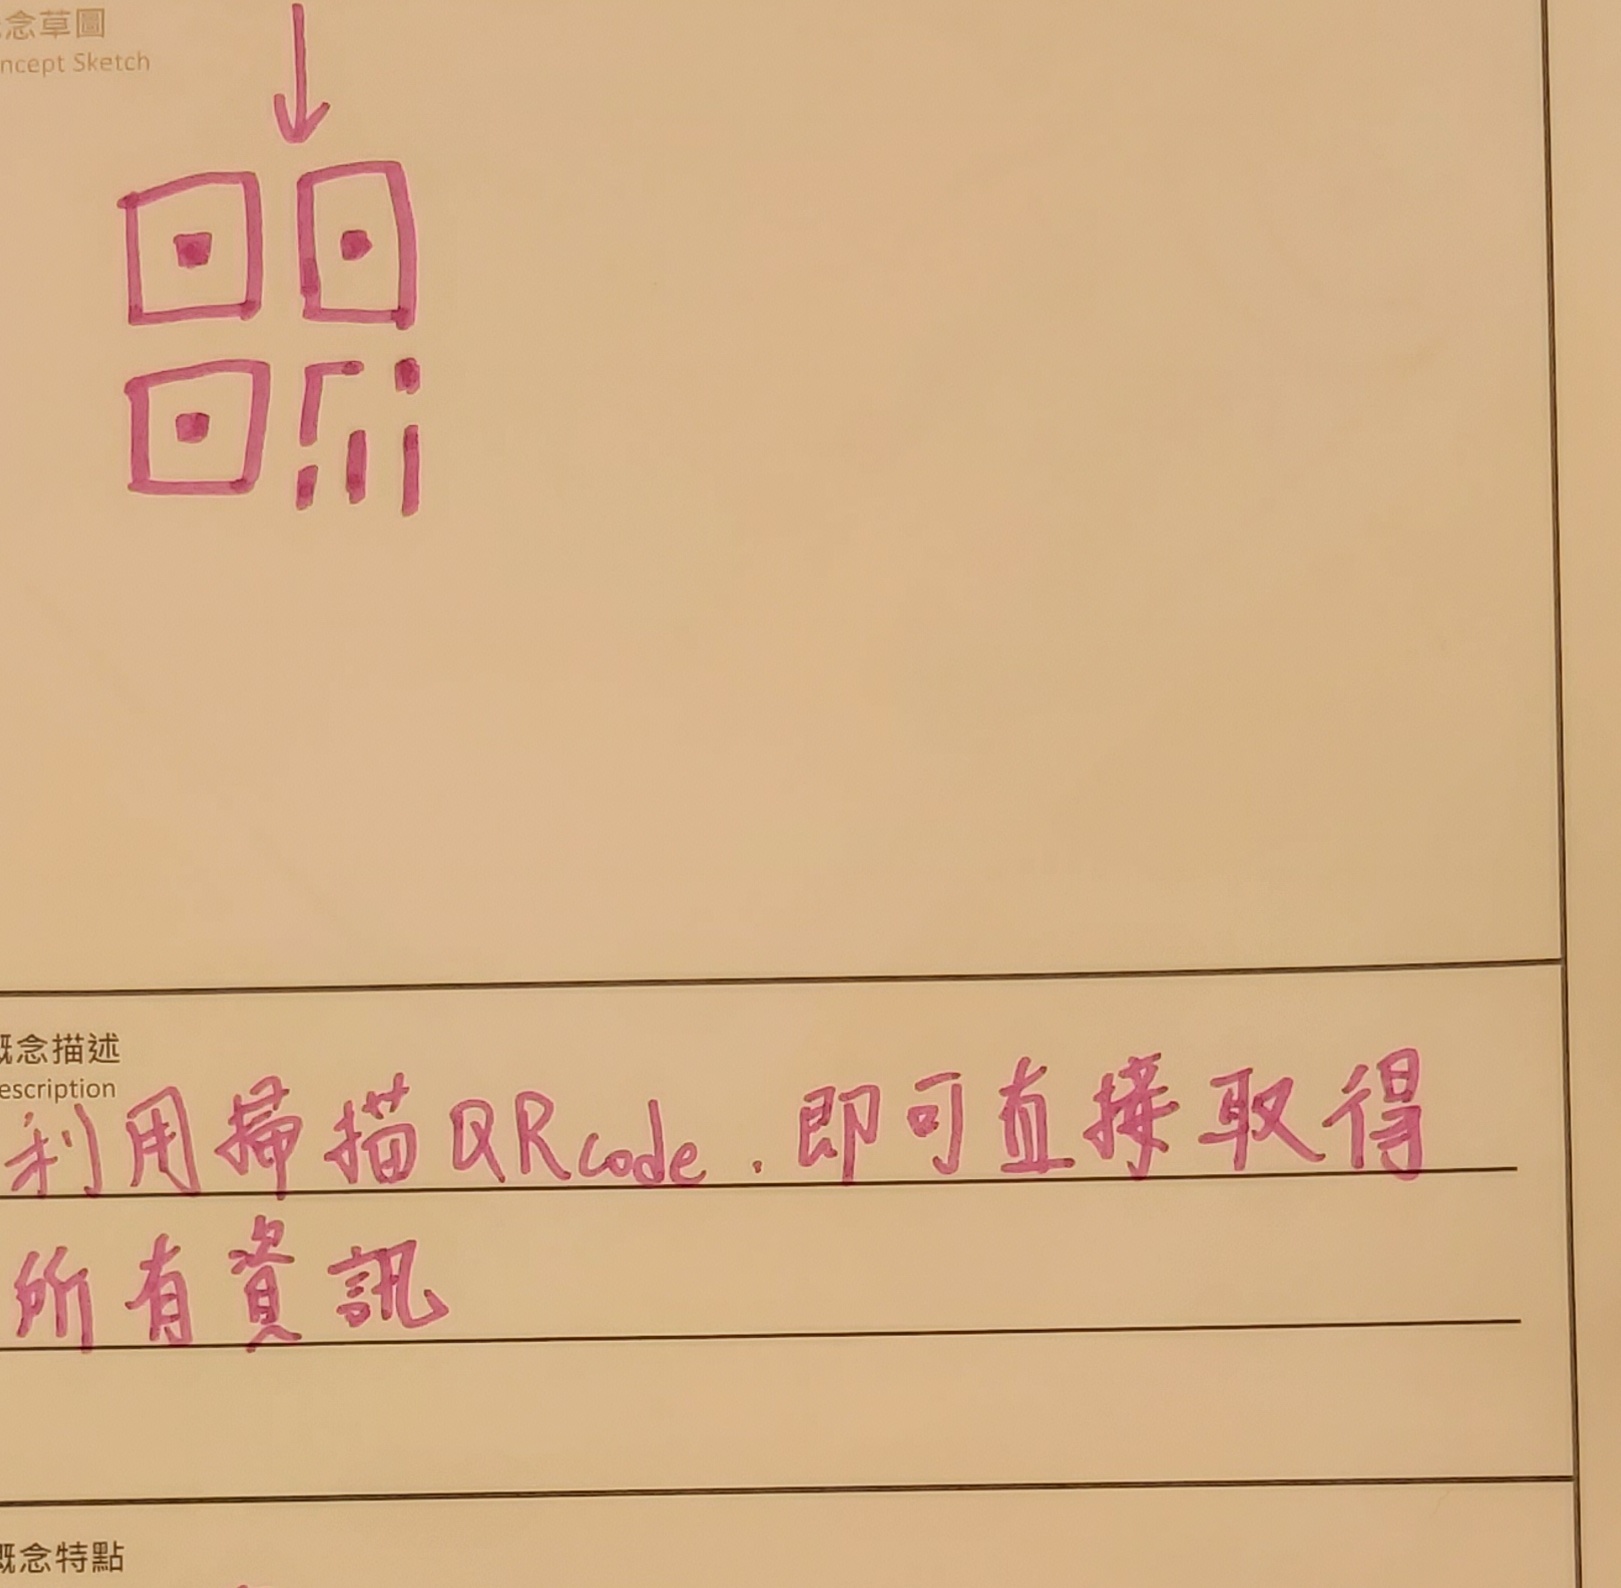 念草圖
ncept Sketch
概念描述
escription
利用掃描QRcode.即可直接取得
所有資訊
概念特點